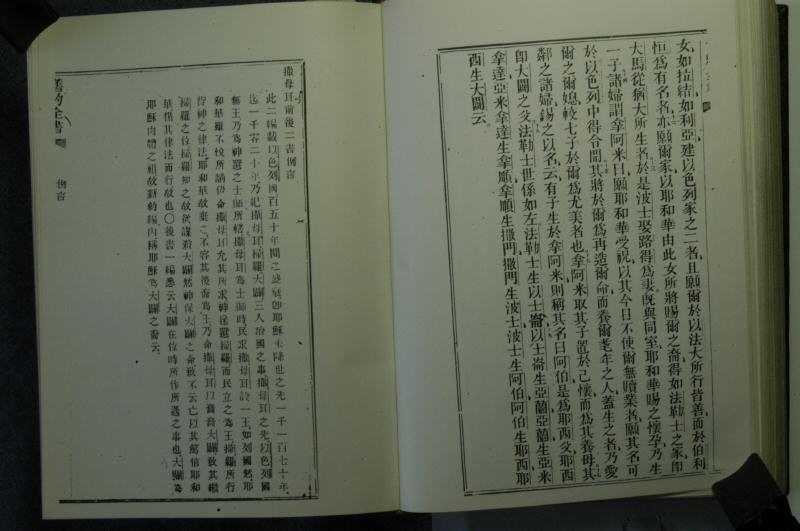 女如拉結如利亞建以色列家之二者且願爾於以法大所行皆善而於伯利
恒為有名者亦願爾家以耶和華由此女所將賜爾之裔得如法勒士之家即
大馬從猶大所生者於是波士娶路得為妻既與同室耶和華賜之懷孕乃生
一子諸婦謂拿阿米曰願耶和華受祝以其今日不使爾無贖業者願其名可
於以色列中得令聞其將於爾為再造爾命而養爾老年之人蓋生之者乃愛
爾之爾媳較七子於爾為尤美者也拿阿米取其子置於己懷而為其養母其
鄰之諸婦錫之以名云有子生於拿阿米則稱其名曰阿伯是為耶西父耶西
即大闢之父法勒士世係如左法勒士生以士崙以士崙生亞蘭亞蘭生亞米
拿達亞米拿達生拿順拿順生撒門撒門生波士波士生阿伯阿伯生耶西耶
西生大闢云
撒母耳前後二書例言
此二編載以色列國百五十年間之 即耶穌未降世之先一千一百七十年
迄一千零二十年乃紀撒母耳掃羅大闢三人治國之事撒母耳之先以色列國
無王乃為神選之士師所轄撒母耳為士師時民求撒母耳設一王如列國然耶
和華雖不悅所請仍命撒母耳允其所求神遂選掃羅而民立之為王掃羅所行
背神之律法耶和華故棄之不容其後裔為王乃命撒母耳以膏膏大闢致其繼
掃羅之位掃羅知之故欲謀殺大闢然神保大闢之命致不云亡以其篤信耶和
華循其律法而行故也〇後書一編悉云大闢在位時所作所遇之事也大闢為
耶穌肉體之祖故新約編內稱耶穌為大闢之裔云
舊約全書
例言